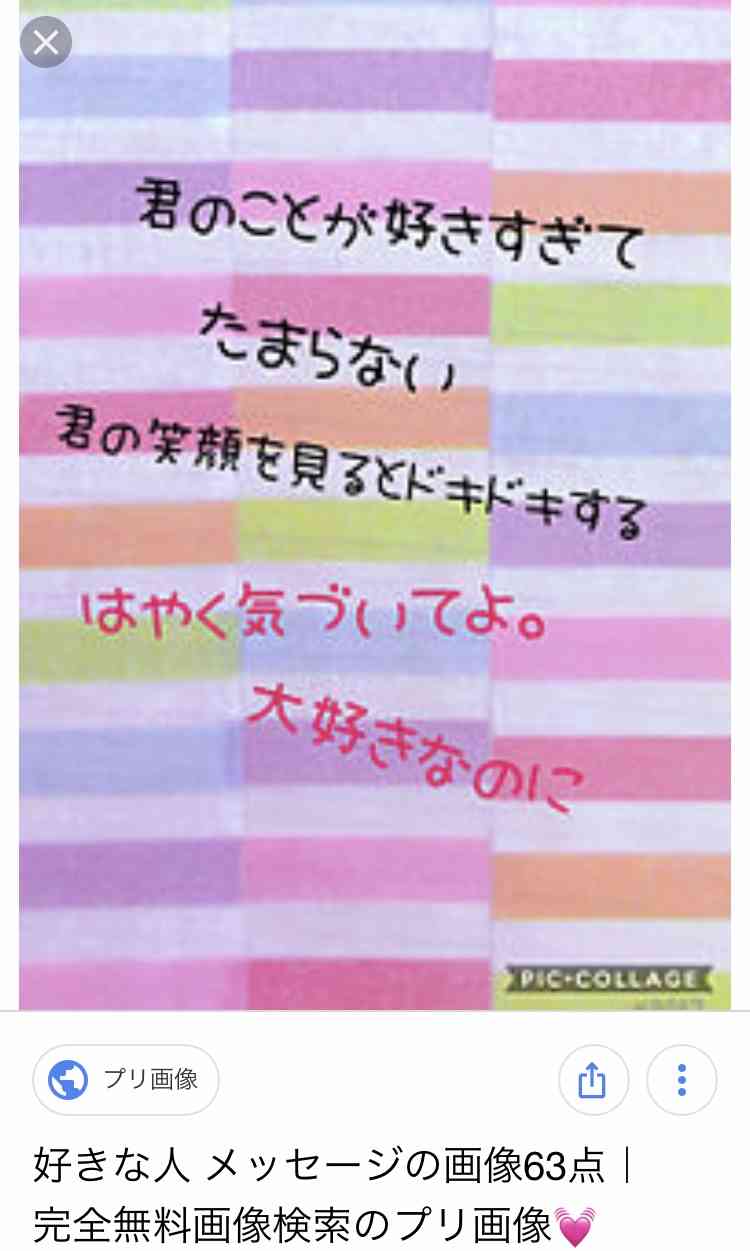 君のことが好きすぎて
たまらない
君の笑顔を見るとドキドキする
はやく気づいてよ。
大好きなのに
PIC•COLLAGE
プリ画像
好きな人 メッセージの画像63点｜
完全無料画像検索のプリ画像💓